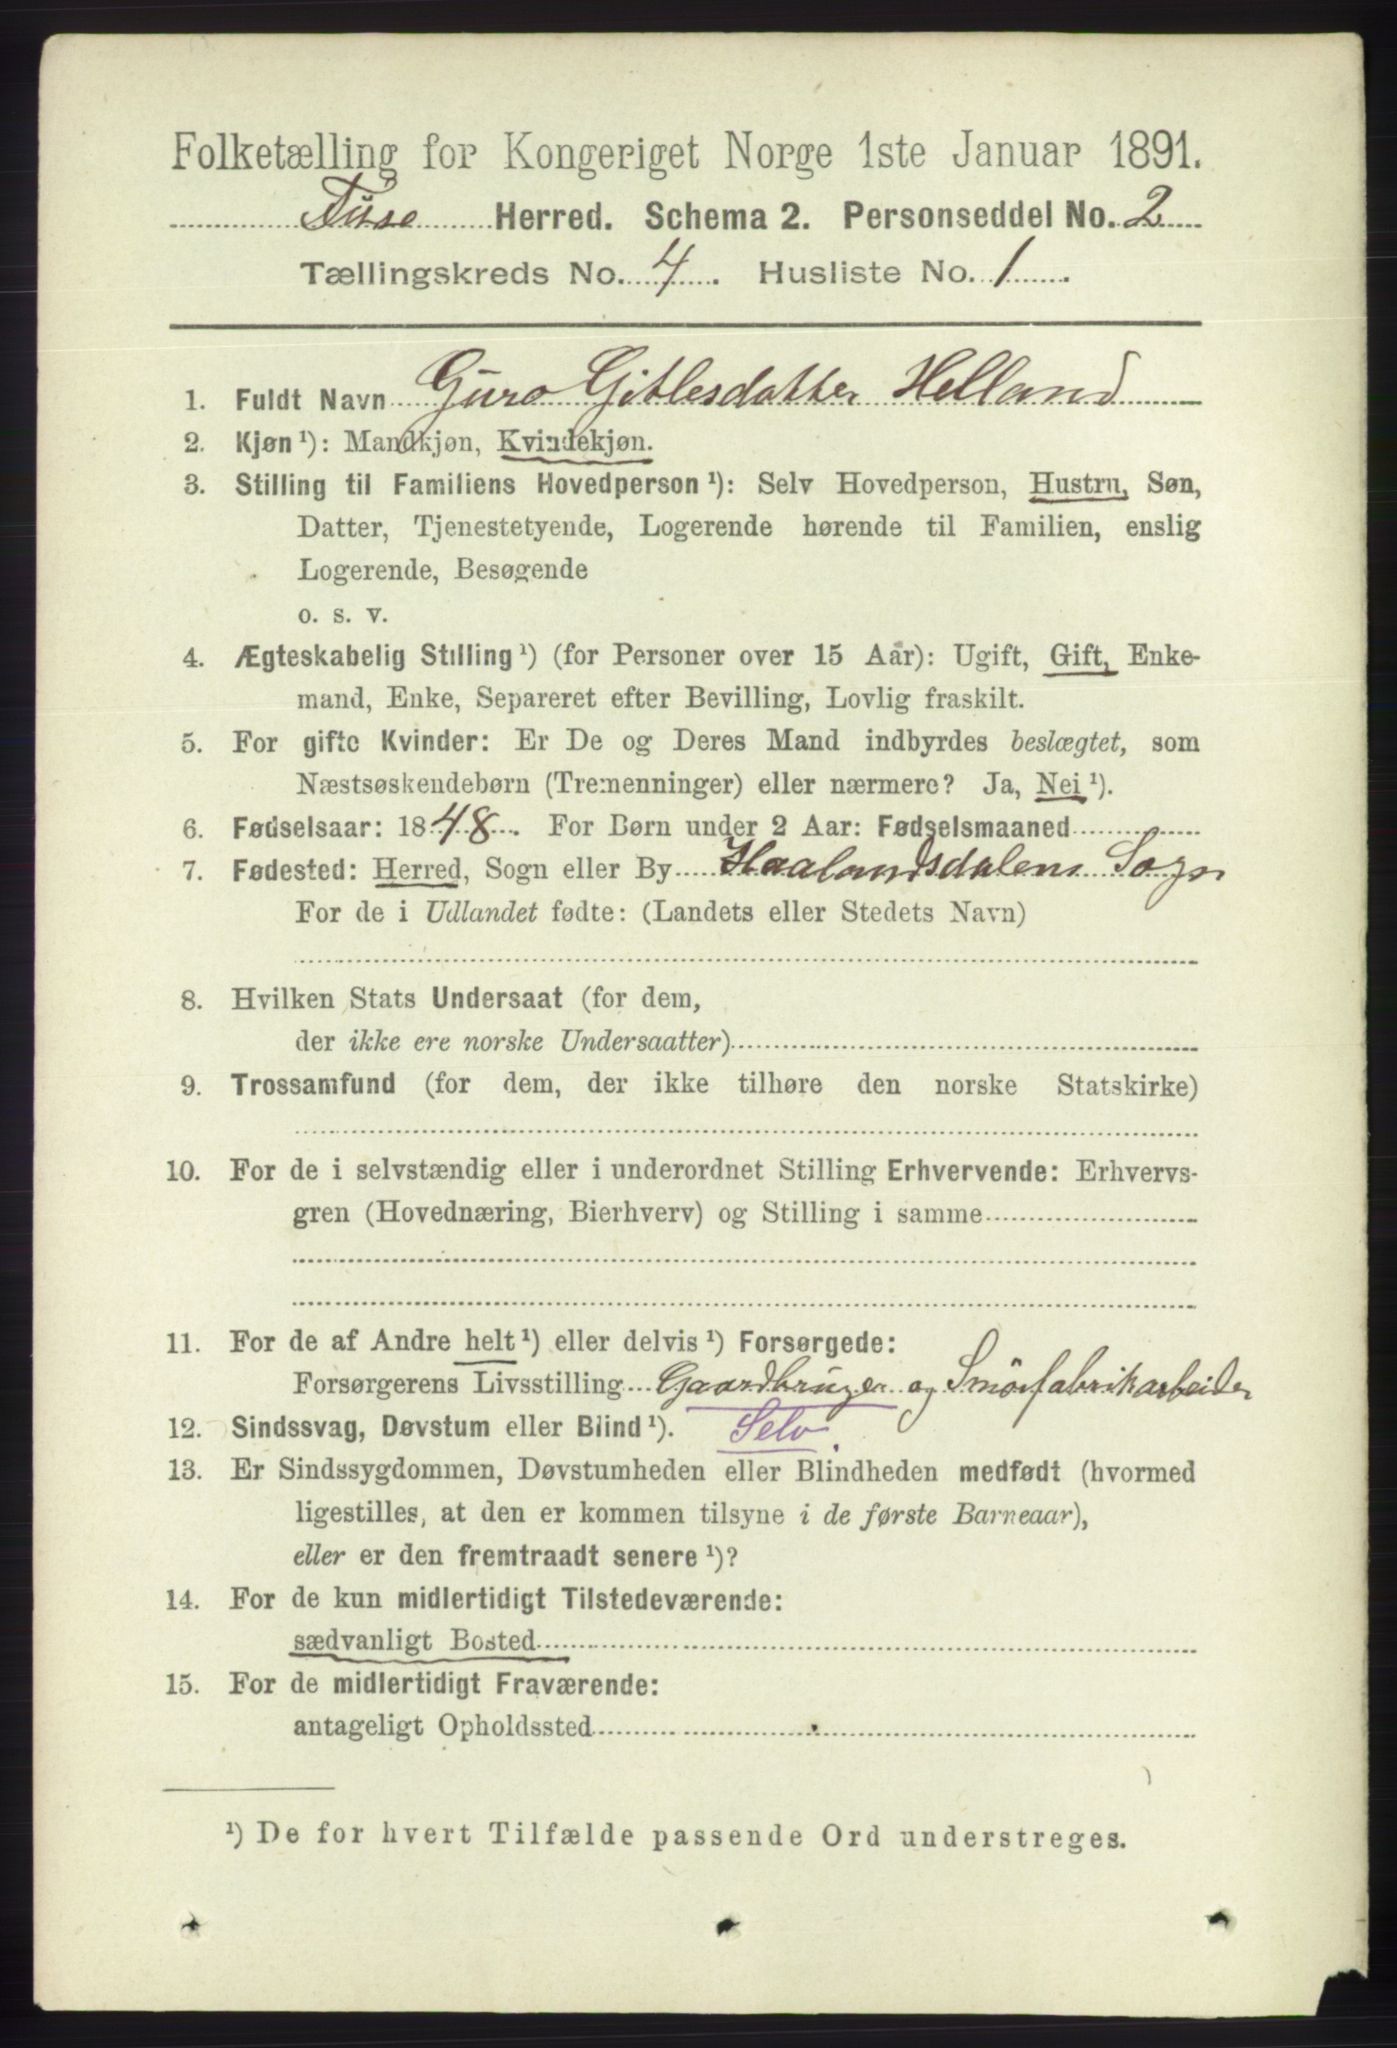 Folketælling for Kongeriget Norge 1ste Januar 1891.
Fuse Herred. Schema 2. Personseddel No. 2
Tællingskreds No. 4. Husliste No. 1.
1. Fuldt Navn Guro Gitlesdatter Helland
2. Kjøn ¹): Mandkjøn, Kvindekjøn.
3. Stilling til Familiens Hovedperson ¹): Selv Hovedperson, Hustru, Søn,
Datter, Tjenestetyende, Logerende hørende til Familien, enslig
Logerende, Besøgende
o. s. v.
4. Ægteskabelig Stilling ¹) (for Personer over 15 Aar): Ugift, Gift, Enke-
mand, Enke, Separeret efter Bevilling, Lovlig fraskilt.
5. For gifte Kvinder: Er De og Deres Mand indbyrdes beslægtet, som
Næstsøskendebørn (Tremenninger) eller nærmere? Ja, Nei ¹).
6. Fødselsaar: 1848. For Børn under 2 Aar: Fødselsmaaned
7. Fødested: Herred, Sogn eller By Haalandsdalens Sogn
For de i Udlandet fødte: (Landets eller Stedets Navn)
8. Hvilken Stats Undersaat (for dem,
der ikke ere norske Undersaatter)
9. Trossamfund (for dem, der ikke tilhøre den norske Statskirke)
10. For de i selvstændig eller i underordnet Stilling Erhvervende: Erhvervs-
gren (Hovednæring, Bierhverv) og Stilling i samme
11. For de af Andre helt ¹) eller delvis ¹) Forsørgede:
Forsørgerens Livsstilling Gaardbruger og Smörfabrikarbeider
12. Sindssvag, Døvstum eller Blind ¹). Selv.
13. Er Sindssygdommen, Døvstumheden eller Blindheden medfødt (hvormed
ligestilles, at den er kommen tilsyne i de første Barneaar),
eller er den fremtraadt senere ¹)?
14. For de kun midlertidigt Tilstedeværende:
sædvanligt Bosted
15. For de midlertidigt Fraværende:
antageligt Opholdssted
¹) De for hvert Tilfælde passende Ord understreges.